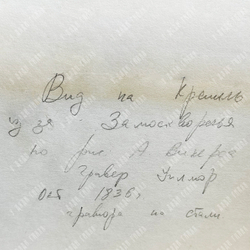 Вид на Кремль
из за Замоскворечья
по рис А Викерса
Гравер Уилмор
Окт 1836 г
гравюра на стали